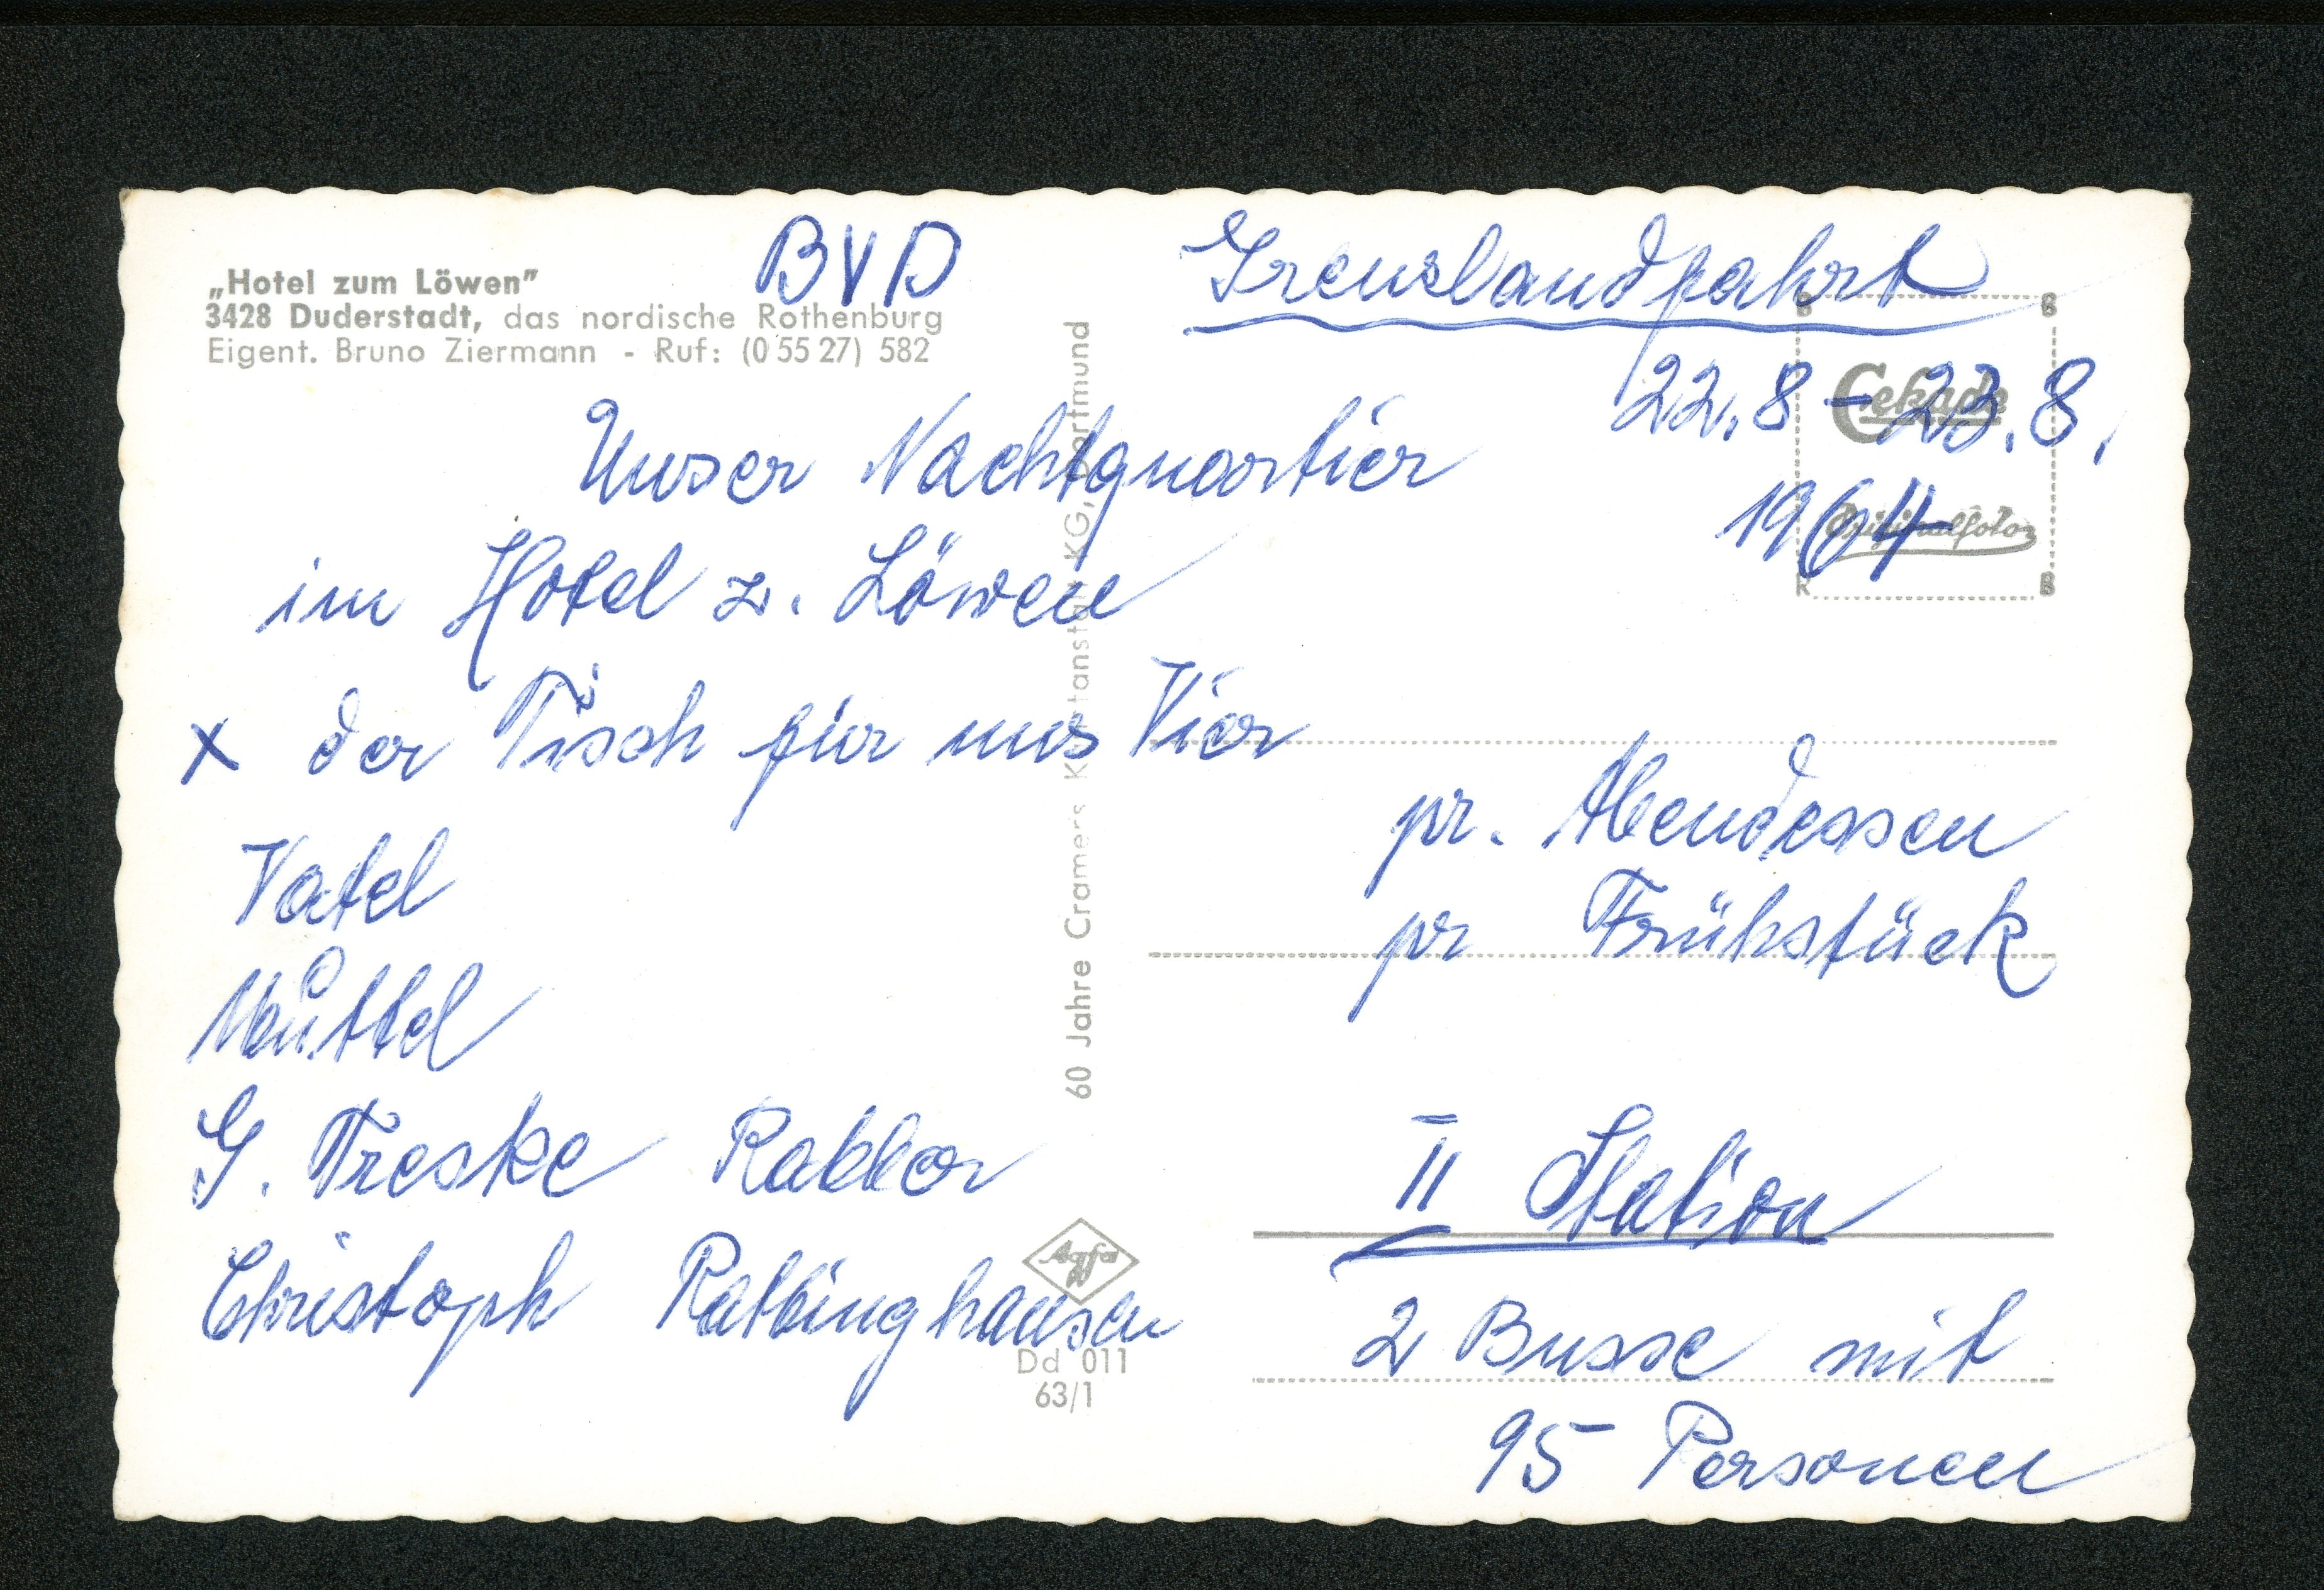 BVD
Grenzlandfahrt
„Hotel zum Löwen"
3428 Duderstadt, das nordische Rothenburg
Eigent. Bruno Ziermann - Ruf: (0 55 27) 582
22.8 - 23.8.
1964
Cekade
Originalfoto
Unser Nachtquartier
im Hotel z. Löwen
x der Tisch für uns Vier
Vatel
Muttel
G. Treske Rabber
Christoph Rabbinghausen
60 Jahre Cramers Kunstanstalt KG, Dortmund
pr. Abendessen
pr Frühstück
II Station
2 Busse mit
95 Personen
Agfa
Dd 011
63/1